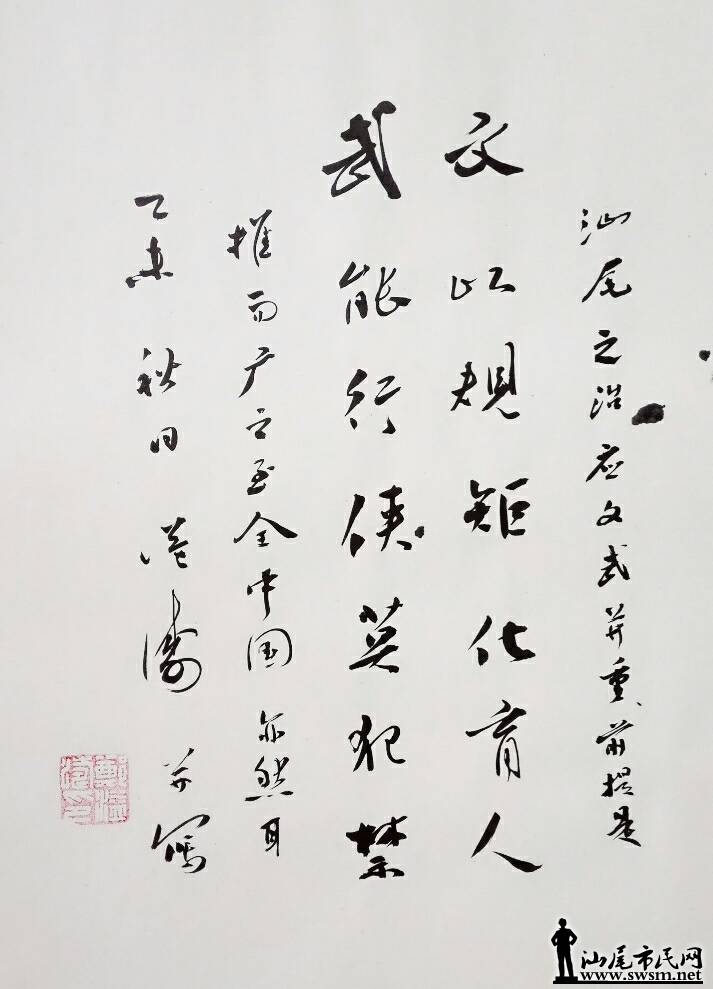 汕尾之治应文武并重、前提是
文以规矩化育人
武能行侠莫犯禁
推而广之至全中国亦然耳
乙未秋日港涛并写
汕尾市民网
www.swsm.net